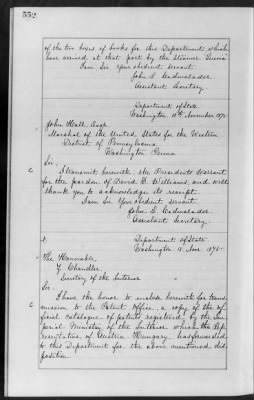 552
of the two boxes of books for this Department which
have arrived at that port by the Steamer
I am Sir Your obedient servant
John L. Cadwalader
Assistant Secretary
Department of State
Washington 18th November 1875
John Hall Esqr
Marshal of the United States for the Western
District of Pennsylvania
Washington Penna
Sir:
C
I transmit herewith the President's Warrant
for the pardon of David B. Williams, and will
thank you to acknowledge its receipt.
I am Sir Your obedient servant.
John L. Cadwalader
Assistant Secretary
Department of State
Washington 18 Nov. 1875
The Honorable
Z Chandler
Secretary of the Interior
Sir.
C
I have the honor to enclose herewith for trans-
mission to the Patent Office, a copy of the of
ficial catalogue of patents registered, by the Im
perial Ministry of the Interior which the Rep
resentative of Austria Hungary has forwarded
to this Department for the above mentioned dis
position